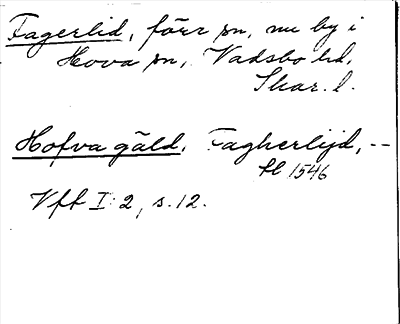 Fagerlid, förr sn, nu by i
Hova sn, Vadsbo hd,
Skar. l.
Hofva gäld. Fagherlijd, --
hl 1546
Vff I:2, s.12.